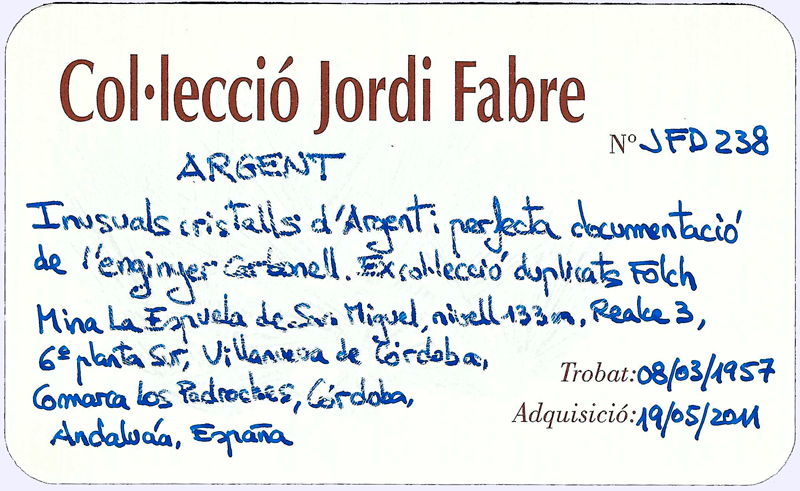 Col·lecció Jordi Fabre
Nº JFD 238
ARGENT
Inusuals cristalls d'Argent i perfecta documentació
de l'enginyer Carbonell. Ex col·lecció duplicats Folch
Mina La Espuela de San Miguel, nivell 133m, Reake 3,
6ª planta Sur, Villanueva de Córdoba,
Comarca Los Pedroches, Córdoba,
Andalucía, España
Trobat: 08/03/1957
Adquisició: 19/05/2011